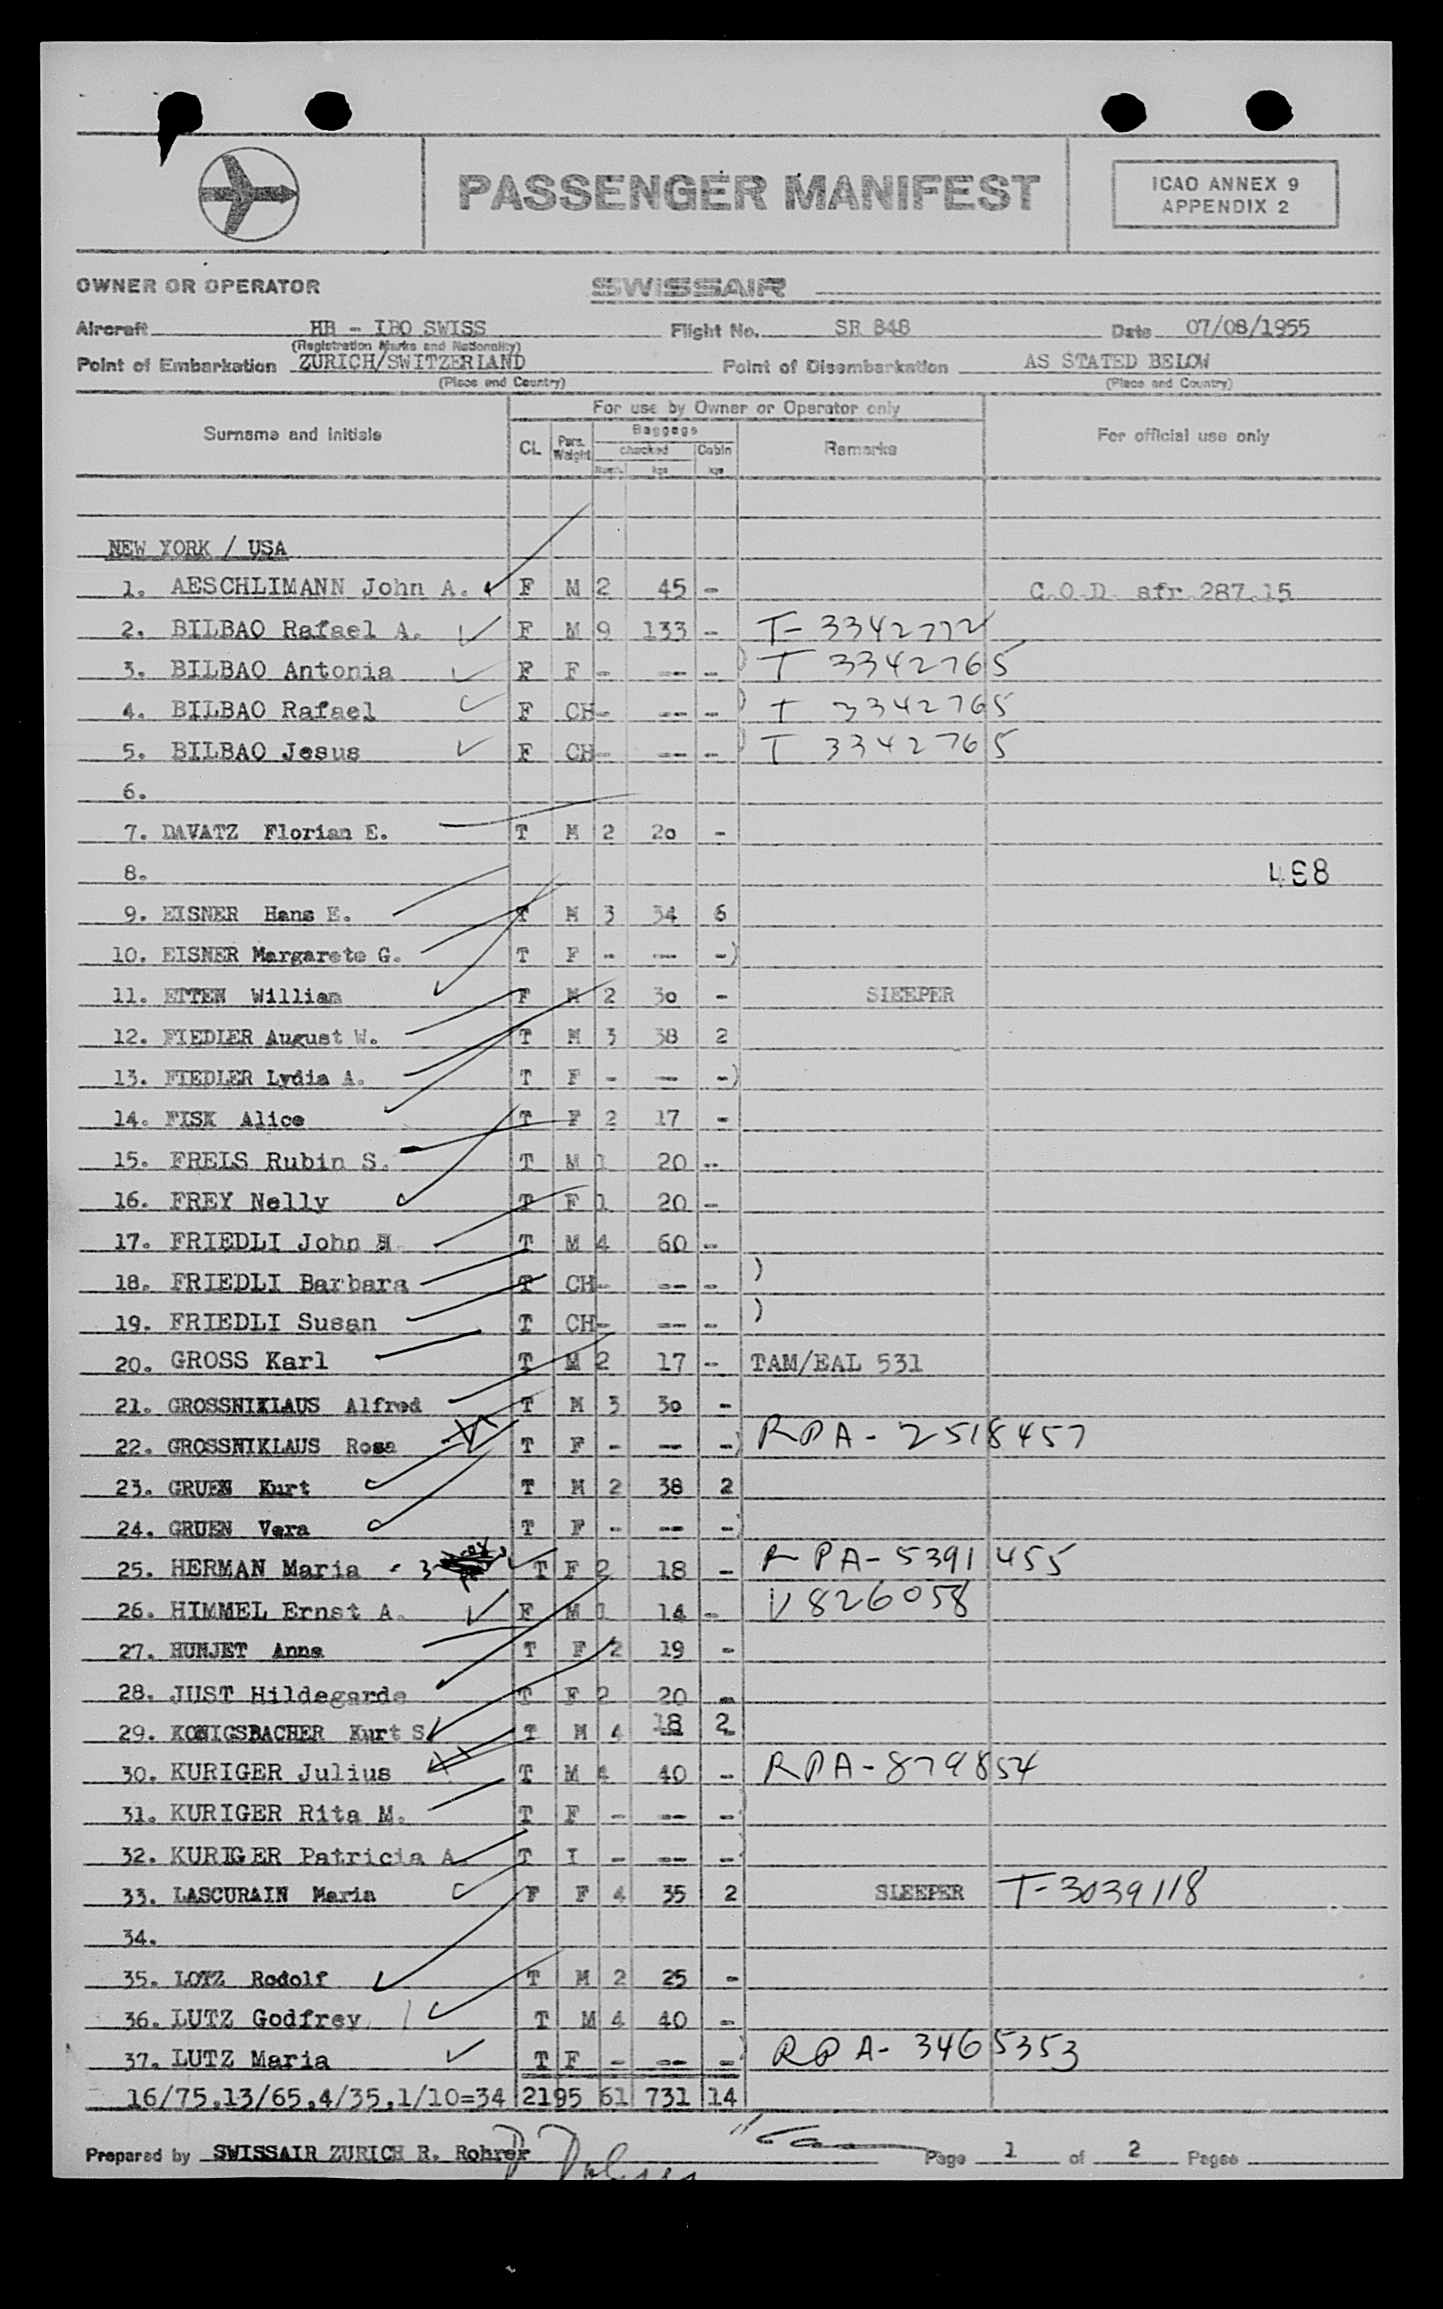 PASSENGER MANIFEST
ICAO ANNEX 9
APPENDIX 2
OWNER OR OPERATOR SWISSAIR
Aircraft HB - IBO SWISS Flight No. SR 848 Date 07/08/1955
(Registration Marks and Nationality)
Point of Embarkation ZURICH/SWITZERLAND Point of Disembarkation AS STATED BELOW
(Place and Country) (Place and Country)
For use by Owner or Operator only
Surname and initials CL Pers. Weight Baggage checked Num. kgs Cabin kgs Remarks For official use only
NEW YORK / USA
1. AESCHLIMANN John A. F M 2 45 - C.O.D. sfr.287.15
2. BILBAO Rafael A. F M 9 133 - T-3342772
3. BILBAO Antonia F F - -- - ) T 3342765
4. BILBAO Rafael F CH - -- - ) T 3342765
5. BILBAO Jesus F CH - -- - ) T 3342765
6.
7. DAVATZ Florian E. T M 2 20 -
8. 498
9. EISNER Hans E. T M 3 34 6
10. EISNER Margarete G. T F - -- -)
11. ETTEN William F M 2 30 - SLEEPER
12. FIEDLER August W. T M 3 38 2
13. FIEDLER Lydia A. T F - -- -)
14. FISK Alice T F 2 17 -
15. FREIS Rubin S. T M 1 20 -
16. FREY Nelly T F 1 20 -
17. FRIEDLI John H T M 4 60 -
18. FRIEDLI Barbara T CH - -- - )
19. FRIEDLI Susan T CH - -- - )
20. GROSS Karl T M 2 17 - TAM/EAL 531
21. GROSSNIKLAUS Alfred T M 3 30 -
22. GROSSNIKLAUS Rosa T F - -- -) RPA-2518457
23. GRUEN Kurt T M 2 38 2
24. GRUEN Vera T F - -- -)
25. HERMAN Maria T F 2 18 - RPA-5391455
26. HIMMEL Ernst A. F M 1 14 - V826058
27. HUNJET Anna T F 2 19 -
28. JUST Hildegarde T F 2 20 -
29. KONIGSBACHER Kurt S. T M 4 18 2
30. KURIGER Julius T M 4 40 - RPA-879854
31. KURIGER Rita M. T F - -- -)
32. KURIGER Patricia A. T I - -- -)
33. LASCURAIN Maria F F 4 35 2 SLEEPER T-3039118
34.
35. LOTZ Rodolf T M 2 25 -
36. LUTZ Godfrey T M 4 40 -
37. LUTZ Maria T F - -- -) RPA-3465353
16/75,13/65,4/35,1/10=34 2195 61 731 14
Prepared by SWISSAIR ZURICH R. Rohrer Page 1 of 2 Pages